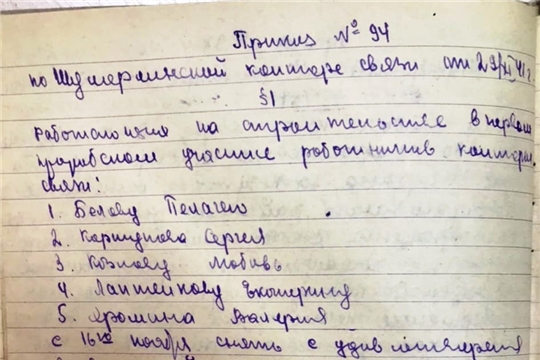 Приказ № 94
по Шумерлинской конторе связи от 29/XI 41 г.
§1
Работающих на строительстве в первом
прорабском участке работников конторы
связи:
1. Белову Пелагею
2. Коршунова Сергея
3. Козлову Любовь
4. Лаптейкову Екатерину
5. Хромина Валерия
с 16го ноября снять с